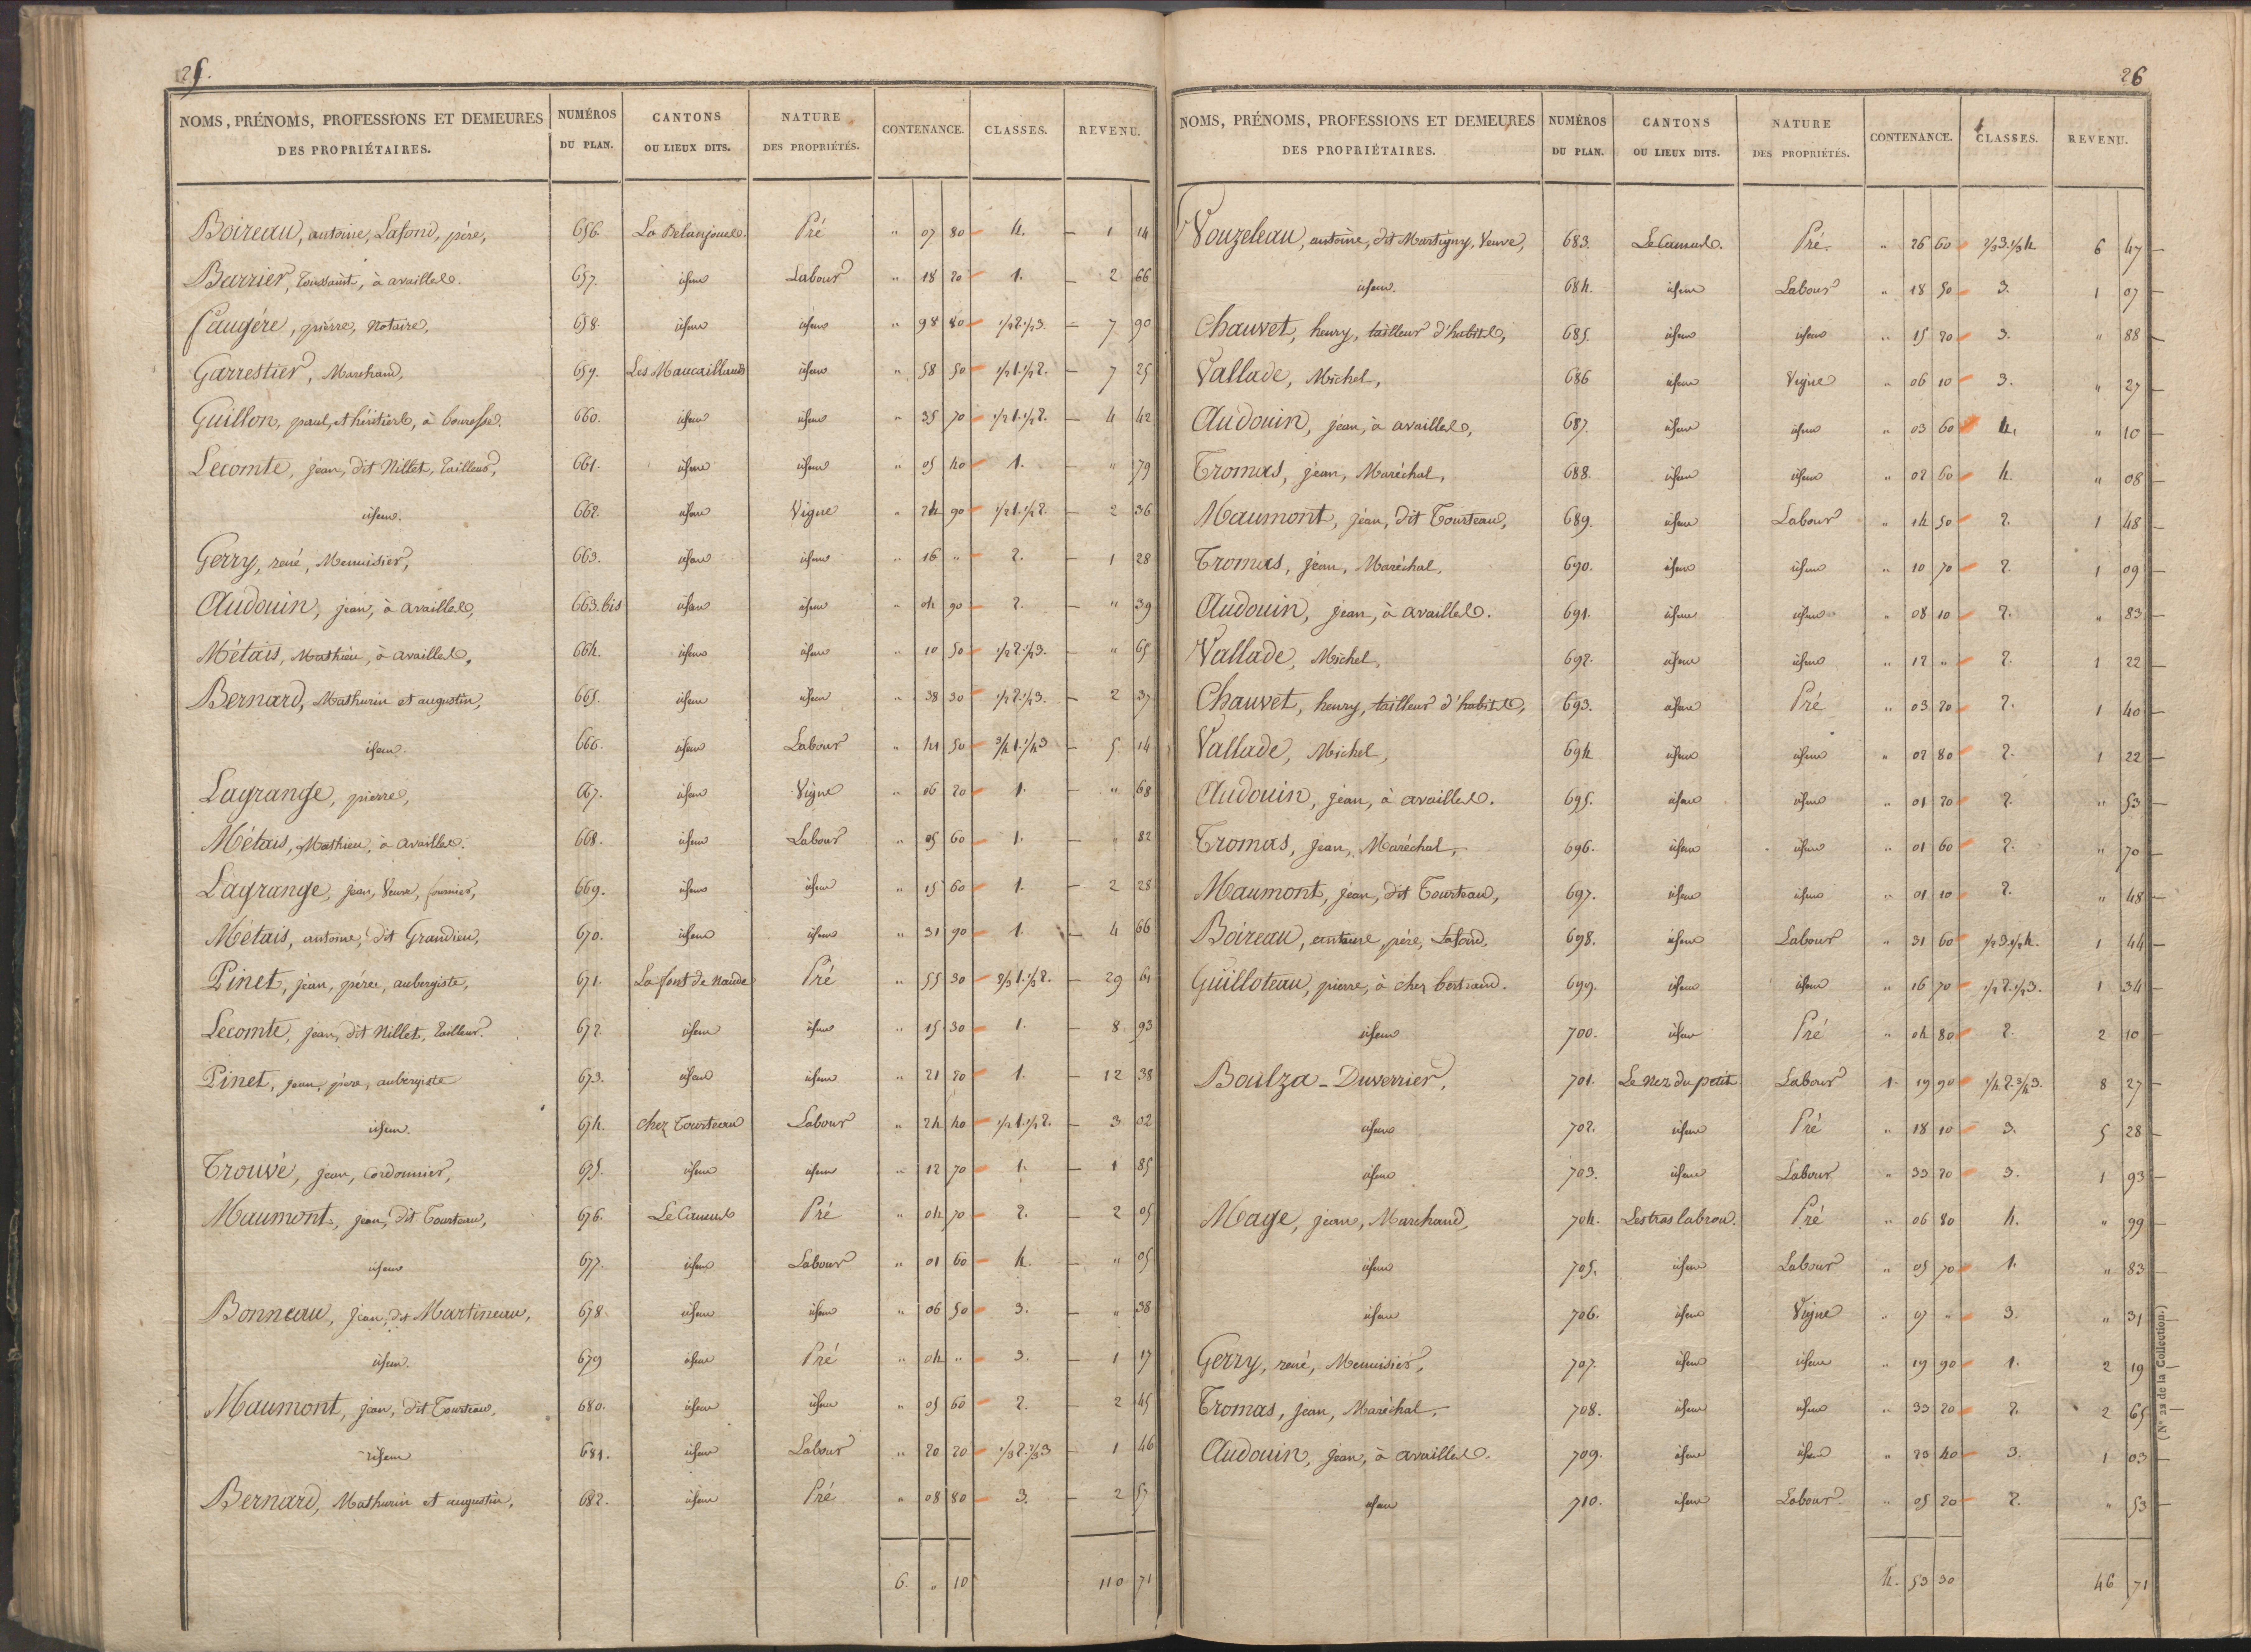 25.
NOMS, PRÉNOMS, PROFESSIONS ET DEMEURES DES PROPRIÉTAIRES. NUMÉROS DU PLAN. CANTONS OU LIEUX DITS. NATURE DES PROPRIÉTÉS. CONTENANCE. CLASSES. REVENU.
Boireau, antoine, Lafond, père, 656. Pré " 07 80 4. 1 14
Barrier, Toussaint, à availles. 657. idem Labour " 18 20 1. 2 66
Faugère, pierre, Notaire, 658. idem idem " 98 80 1/2 2. 1/2 3. 7 90
Garrestier, Marchand, 659. Les Maucaillauds idem " 58 50 1/2 1. 1/2 2. 7 25
Guillon, paul, et héritiers, à bouresse. 660. idem idem " 35 70 1/2 1. 1/2 2. 4 42
Lecomte, jean, dit Nillet, Tailleur, 661. idem idem " 05 40 1. " 79
idem. 662. idem Vigne " 24 90 1/2 1. 1/2 2. 2 36
Gerry, rené, Menuisier, 663. idem idem " 16 " 2. 1 28
Audouin, jean, à availles, 663. bis idem idem " 04 90 2. " 39
Métais, Mathieu, à availles, 664. idem idem " 10 50 1/2 2. 1/2 3. " 65
Bernard, Mathurin et augustin, 665. idem idem " 38 30 1/2 2. 1/2 3. 2 37
idem. 666. idem Labour " 41 50 3/4 1. 1/4 3 5 14
Lagrange, pierre, 667. idem Vigne " 06 20 1. " 68
Métais, Mathieu, à availles. 668. idem Labour " 05 60 1. " 82
Lagrange, jean, Veuve, fournier, 669. idem idem " 15 60 1. 2 28
Métais, antoine, dit Grandieu, 670. idem idem " 31 90 1. 4 66
Pinet, jean, père, aubergiste, 671. La font de Naude Pré " 55 30 2/3 1. 1/3 2. 29 61
Lecomte, jean, dit Nillet, Tailleur. 672. idem idem " 15 30 1. 8 93
Pinet, jean, père, aubergiste 673. idem idem " 21 20 1. 12 38
idem. 674. chez Tourteau Labour " 24 40 1/2 1. 1/2 2. 3 02
Trouvé, jean, Cordonnier, 675. idem idem " 12 70 1. 1 85
Maumont, jean, dit Tourteau, 676. Pré " 04 70 2. 2 05
idem 677. idem Labour " 01 60 4. " 05
Bonneau, jean, dit Martineau, 678. idem idem " 06 50 3. " 38
idem. 679 idem Pré " 04 " 3. 1 17
Maumont, jean, dit Tourteau, 680. idem idem " 05 60 2. 2 45
idem 681. idem Labour " 20 20 1/3 2. 2/3 3 1 46
Bernard, Mathurin et augustin, 682. idem Pré " 08 80 3. 2 57
6. " 10 110 71
26
NOMS, PRÉNOMS, PROFESSIONS ET DEMEURES DES PROPRIÉTAIRES. NUMÉROS DU PLAN. CANTONS OU LIEUX DITS. NATURE DES PROPRIÉTÉS. CONTENANCE. CLASSES. REVENU.
Vouzeleau, antoine, dit Martigny, Veuve, 683. Pré " 26 60 2/3 3. 1/3 4 6 47
idem. 684. idem Labour " 18 50 3. 1 07
Chauvet, henry, tailleur d'habits, 685. idem idem " 15 20 3. " 88
Vallade, Michel, 686 idem Vigne " 06 10 3. " 27
Audouin, jean, à availles, 687. idem idem " 03 60 4. " 10
Tromas, jean, Maréchal, 688. idem idem " 02 60 4. " 08
Maumont, jean, dit Tourteau, 689. idem Labour " 14 50 2. 1 48
Tromas, jean, Maréchal, 690. idem idem " 10 70 2. 1 09
Audouin, jean, à availles. 691. idem idem " 08 10 2. " 83
Vallade, Michel, 692. idem idem " 12 " 2. 1 22
Chauvet, henry, tailleur d'habits, 693. idem Pré " 03 20 2. 1 40
Vallade, Michel, 694 idem idem " 02 80 2. 1 22
Audouin, jean, à availles. 695. idem idem " 01 20 2. " 53
Tromas, jean, Maréchal, 696. idem idem " 01 60 2. " 70
Maumont, jean, dit Tourteau, 697. idem idem " 01 10 2. " 48
Boireau, antoine, père, Lafond. 698. idem Labour " 31 60 1/2 3. 1/2 4. 1 44
Guilloteau, pierre, à chez bertrand. 699. idem idem " 16 70 1/2 2. 1/2 3. 1 34
idem 700. idem Pré " 04 80 2. 2 10
Boulza-Duverrier, 701. Le Nez du petit Labour 1 19 90 1/4 2. 3/4 3. 8 27
idem 702. idem Pré " 18 10 3. 5 28
idem 703. idem Labour " 33 20 3. 1 93
Mage, jean, Marchand, 704. Pré " 06 80 4. " 99
idem 705. idem Labour " 05 70 1. " 83
idem 706. idem Vigne " 07 " 3. " 31
Gerry, rené, Menuisier, 707. idem idem " 19 90 1. 2 19
Tromas, jean, Maréchal, 708. idem idem " 33 20 2. 2 65
Audouin, jean, à availles. 709. idem idem " 23 40 3. 1 03
idem 710. idem Labour. " 05 20 2. " 53
4. 53 30 46 71
(N° 22 de la Collection.)